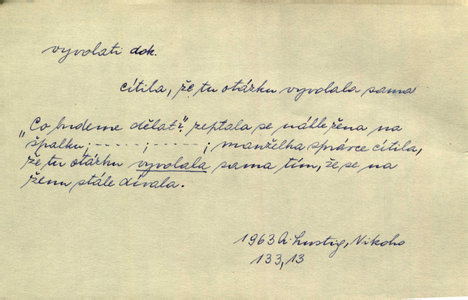 vyvolati dok.
cítila, že tu otázku vyvolala sama
„Co budeme dělat?“, zeptala se náhle žena na
špalku; - - - - - ; - - - - - - - ; manželka správce cítila,
že tu otázku vyvolala sama tím, že se na
ženu stále dívala.
1963 A. Lustig, Nikoho
133,13